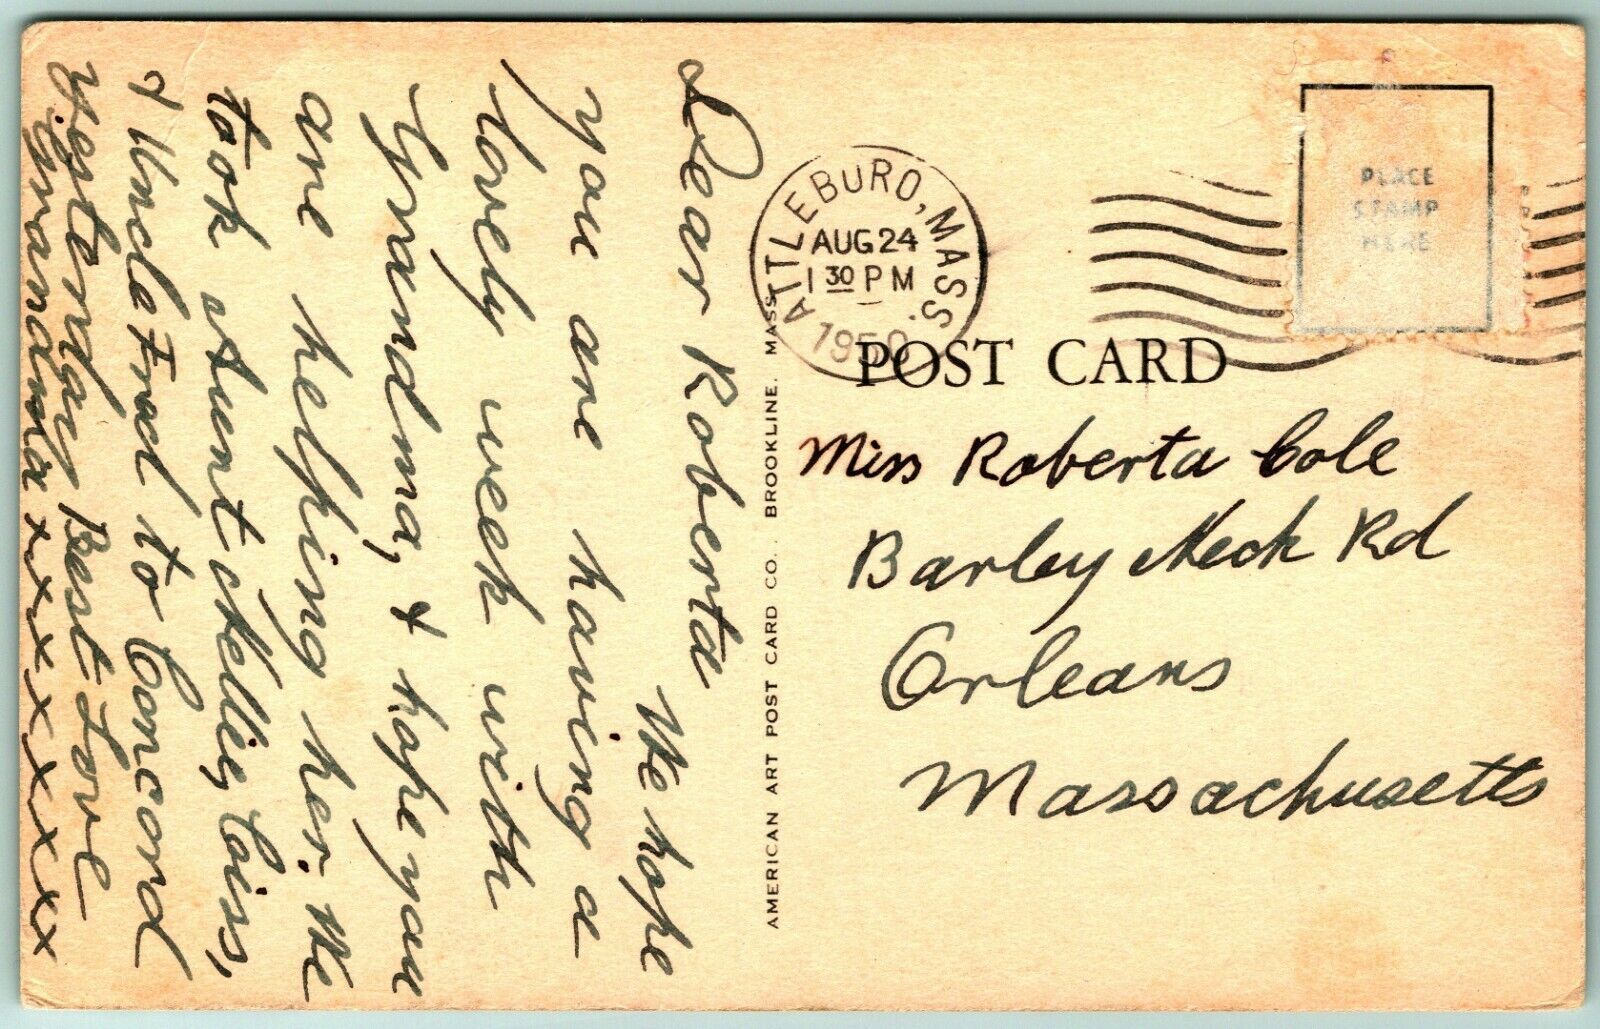 Dear Roberta
We hope
you are having a
lovely week with
Grandma, & hope you
are helping her. We
took Aunt Nellie, Cois,
& Uncle Fred to Concord
yesterday Best Love
Grandma xxxxxxxxx
AMERICAN ART POST CARD CO., BROOKLINE, MASS.
ATTLEBORO, MASS.
AUG 24
1 30 PM
1950
PLACE
STAMP
HERE
POST CARD
Miss Roberta Cole
Barley Neck Rd
Orleans
Massachusetts